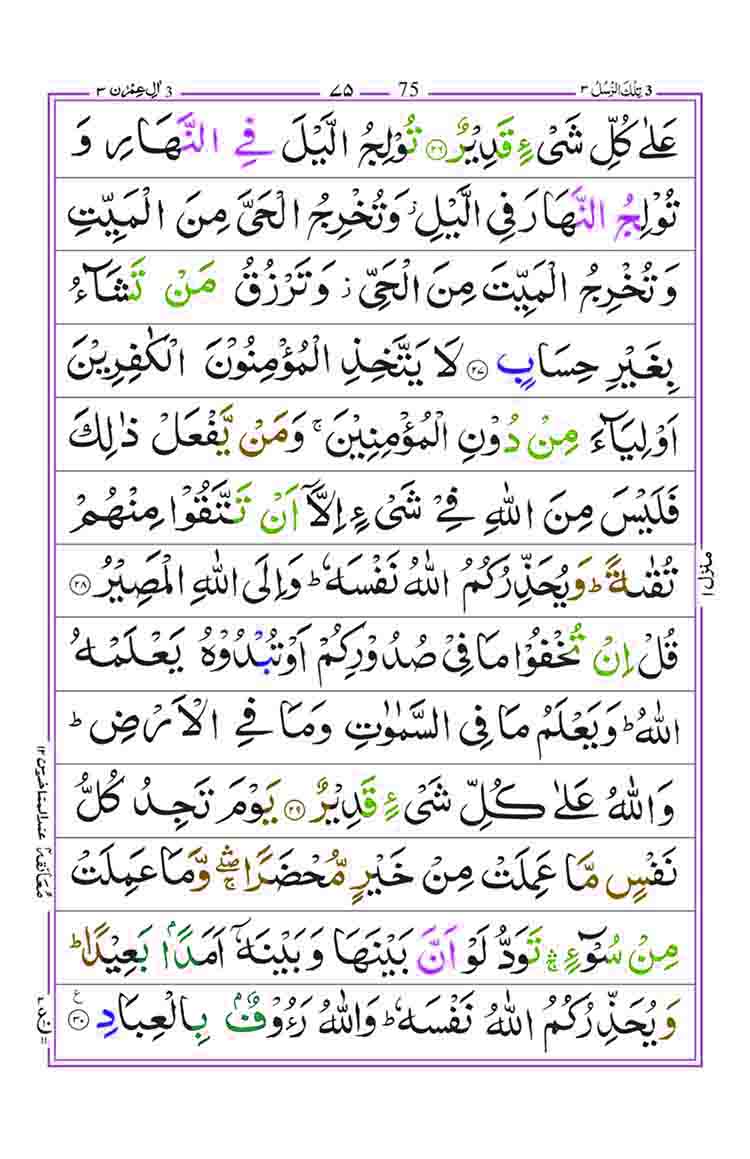 3 تِلْكَ الرُّسُلُ ٣ 75 ٧٥ 3 اٰلِ عِمْرٰن ٣
عَلٰى كُلِّ شَىْءٍ قَدِيْرٌ ﴿۲۶﴾ تُوْلِجُ الَّيْلَ فِى النَّهَارِ وَ
تُوْلِجُ النَّهَارَ فِى الَّيْلِ ۡ وَتُخْرِجُ الْحَىَّ مِنَ الْمَيِّتِ
وَتُخْرِجُ الْمَيِّتَ مِنَ الْحَىِّ ۡ وَتَرْزُقُ مَنْ تَشَآءُ
بِغَيْرِ حِسَابٍ ﴿۲۷﴾ لَا يَتَّخِذِ الْمُؤْمِنُوْنَ الْكٰفِرِيْنَ
اَوْلِيَآءَ مِنْ دُوْنِ الْمُؤْمِنِيْنَ ۚ وَمَنْ يَّفْعَلْ ذٰلِكَ
فَلَيْسَ مِنَ اللّٰهِ فِىْ شَىْءٍ اِلَّاۤ اَنْ تَتَّقُوْا مِنْهُمْ
تُقٰٮةً ؕ وَيُحَذِّرُكُمُ اللّٰهُ نَفْسَهٗ ؕ وَاِلَى اللّٰهِ الْمَصِيْرُ ﴿۲۸﴾
قُلْ اِنْ تُخْفُوْا مَا فِىْ صُدُوْرِكُمْ اَوْ تُبْدُوْهُ يَعْلَمْهُ
اللّٰهُ ؕ وَيَعْلَمُ مَا فِى السَّمٰوٰتِ وَمَا فِى الْاَرْضِ ؕ
وَاللّٰهُ عَلٰى كُلِّ شَىْءٍ قَدِيْرٌ ﴿۲۹﴾ يَوْمَ تَجِدُ كُلُّ
نَفْسٍ مَّا عَمِلَتْ مِنْ خَيْرٍ مُّحْضَرًا ۛۖۚ وَّمَا عَمِلَتْ
مِنْ سُوْٓءٍ ۛۚ تَوَدُّ لَوْ اَنَّ بَيْنَهَا وَبَيْنَهٗۤ اَمَدًۢا بَعِيْدًا ؕ
وَيُحَذِّرُكُمُ اللّٰهُ نَفْسَهٗ ؕ وَاللّٰهُ رَءُوْفٌۢ بِالْعِبَادِ ﴿۳۰﴾
منزل ١
معانقة عند المتاخرين ١٢